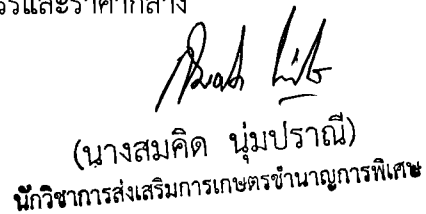 และราคากลาง
(นางสมคิด นุ่มปราณี)
นักวิชาการส่งเสริมการเกษตรชำนาญการพิเศษ